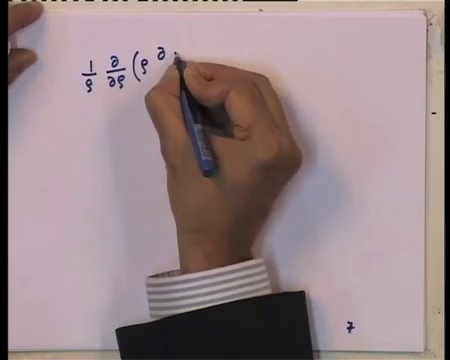 1/ρ ∂/∂ρ (ρ ∂
7